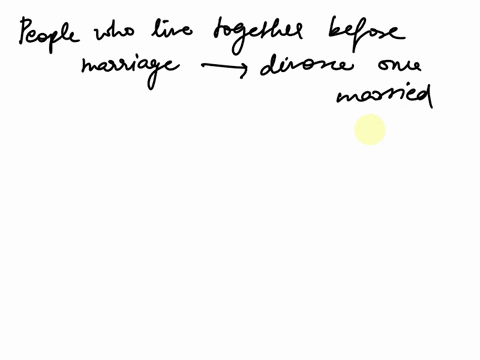 People who live together before
marriage → divorce once
married